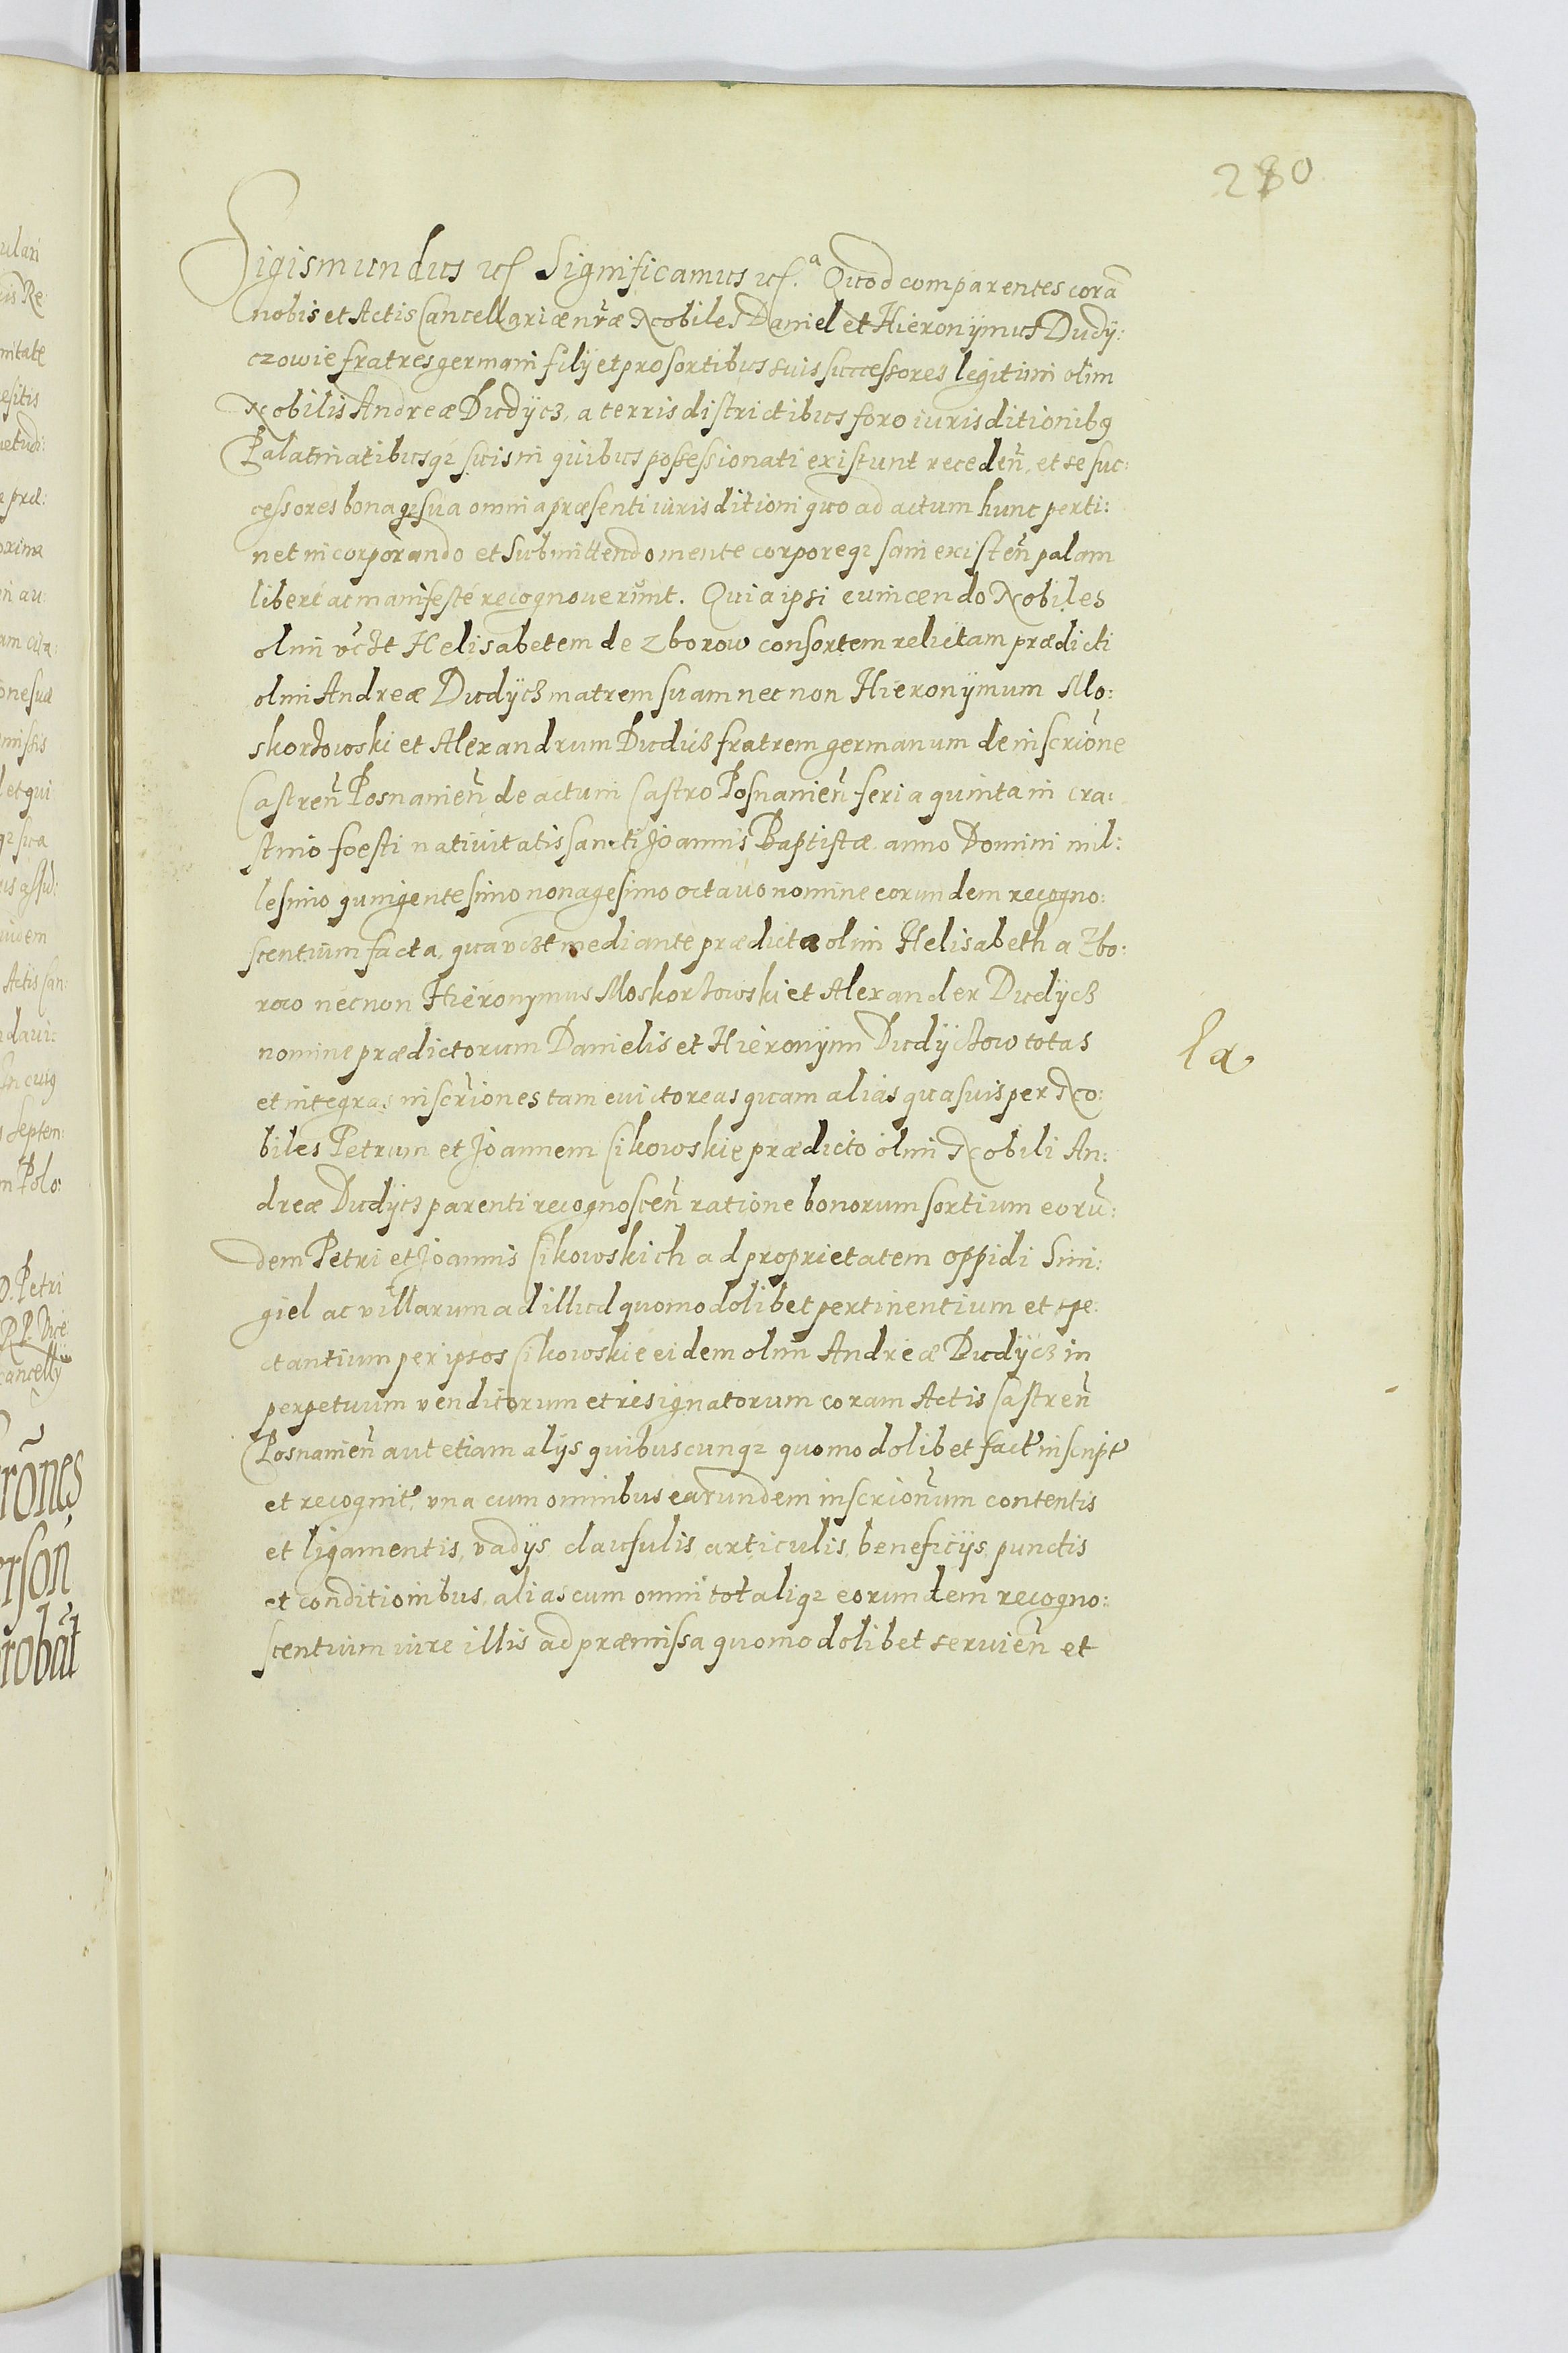 280
Sigismundus etc. Significamus etc.ª Quod comparentes corā
nobis et Actis Cancellariæ nr̃æ Nobiles Daniel et Hieronÿmus Dudÿ:
czowie fratres germani filÿ et pro sortibus suis successores legitimi olim
Nobilis Andreæ Dudÿcz, a terris districtibus foro iurisditionibq
Palatinatibusqȝ suis in quibus possessionati existunt recedeñ, et se suc:
cessores bonaqȝ sua omnia præsenti iurisditioni quo ad actum hunc perti:
net incorporando et submittendo mente corporeqȝ sani existeñ palam
liberé ac manifesté recognouerunt. Quia ipsi euincendo Nobiles
olim vc̃zt Helisabetem de Zborow consortem relictam prædicti
olim Andreæ Dudÿcz matrem suam nec non Hieronÿmum Mo:
skorzowski et Alexandrum Dudicz fratrem germanum de inscrip̃one
Castreñ Posnanieñ de actu in Castro Posnanieñ feria quinta in cra:
stino foesti natiuitatis sancti Joannis Baptistæ anno Domini mil:
lesimo quingentesimo nonagesimo octauo nomine eorundem recogno:
scentium facta, qua vczt mediante prædicta olim Helisabeth a Zbo:
row nec non Hieronymus Moskorzowski et Alexander Dudÿcz
nomine prædictorum Danielis et Hieronÿmi Dudÿczow totas
et integras inscr̃iones tam euictoreas quam alias quasuis per No:
biles Petrum et Joannem Cikowskie prædicto olim Nobili An:
dreæ Dudÿcz parenti recognosceñ ratione bonorum sortium eorū:
dem Petri et Joannis Cikowskich ad proprietatem oppidi Smi:
giel ac villarum ad illud quomodolibet pertinentium et spe:
ctantium per ipsos Cikowskié eidem olim Andreæ Dudÿcz in
perpetuum venditorum et resignatorum coram Actis Castreñ
Posnanieñ aut etiam alÿs quibuscunqȝ quomodolibet fact' inscript'
et recognit' vna cum omnibus earundem inscrionūm contentis
et ligamentis, vadÿs, clausulis articulis, beneficÿs punctis
et conditionibus, alias cum omni totaliqȝ eorundem recogno:
scentium iure illis ad præmissa quomodolibet seruieñ et